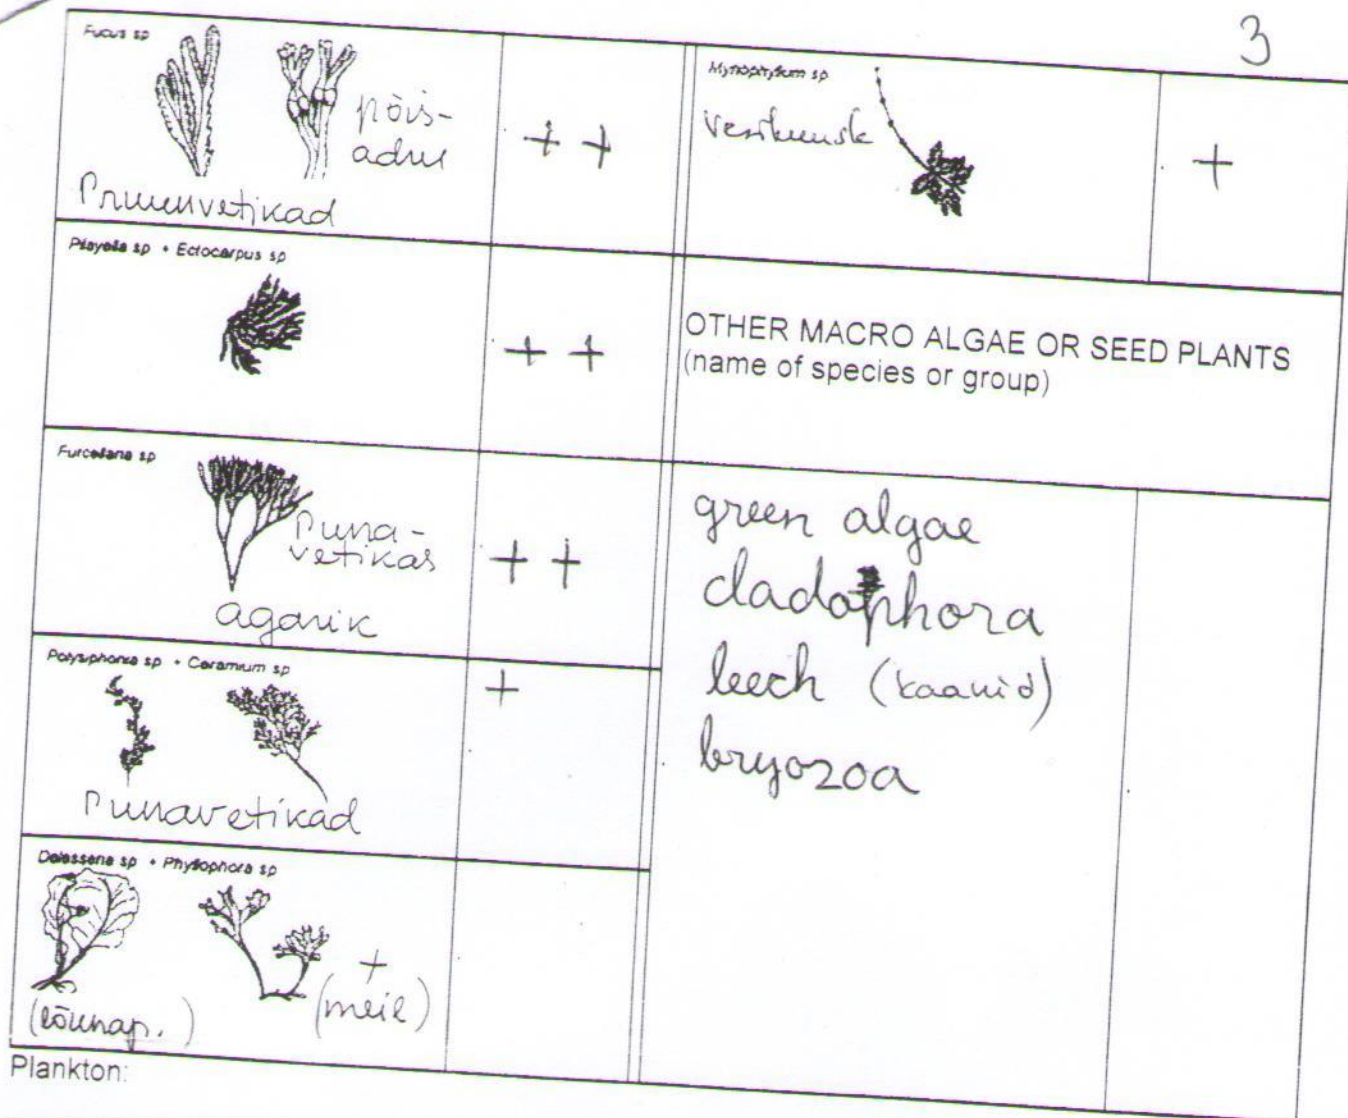 3
Fucus sp
põis-
adru
Pruunvetikad
++
Pilayella sp + Ectocarpus sp
++
Furcellaria sp
Puna-
vetikas
agarik
++
Polysiphonia sp + Ceramium sp
Punavetikad
+
Delesseria sp + Phyllophora sp
+
(lõunap.) (meil)
Plankton:
Myriophyllum sp
vesikuusk
+
OTHER MACRO ALGAE OR SEED PLANTS
(name of species or group)
green algae
cladophora
leech (kaanid)
bryozoa